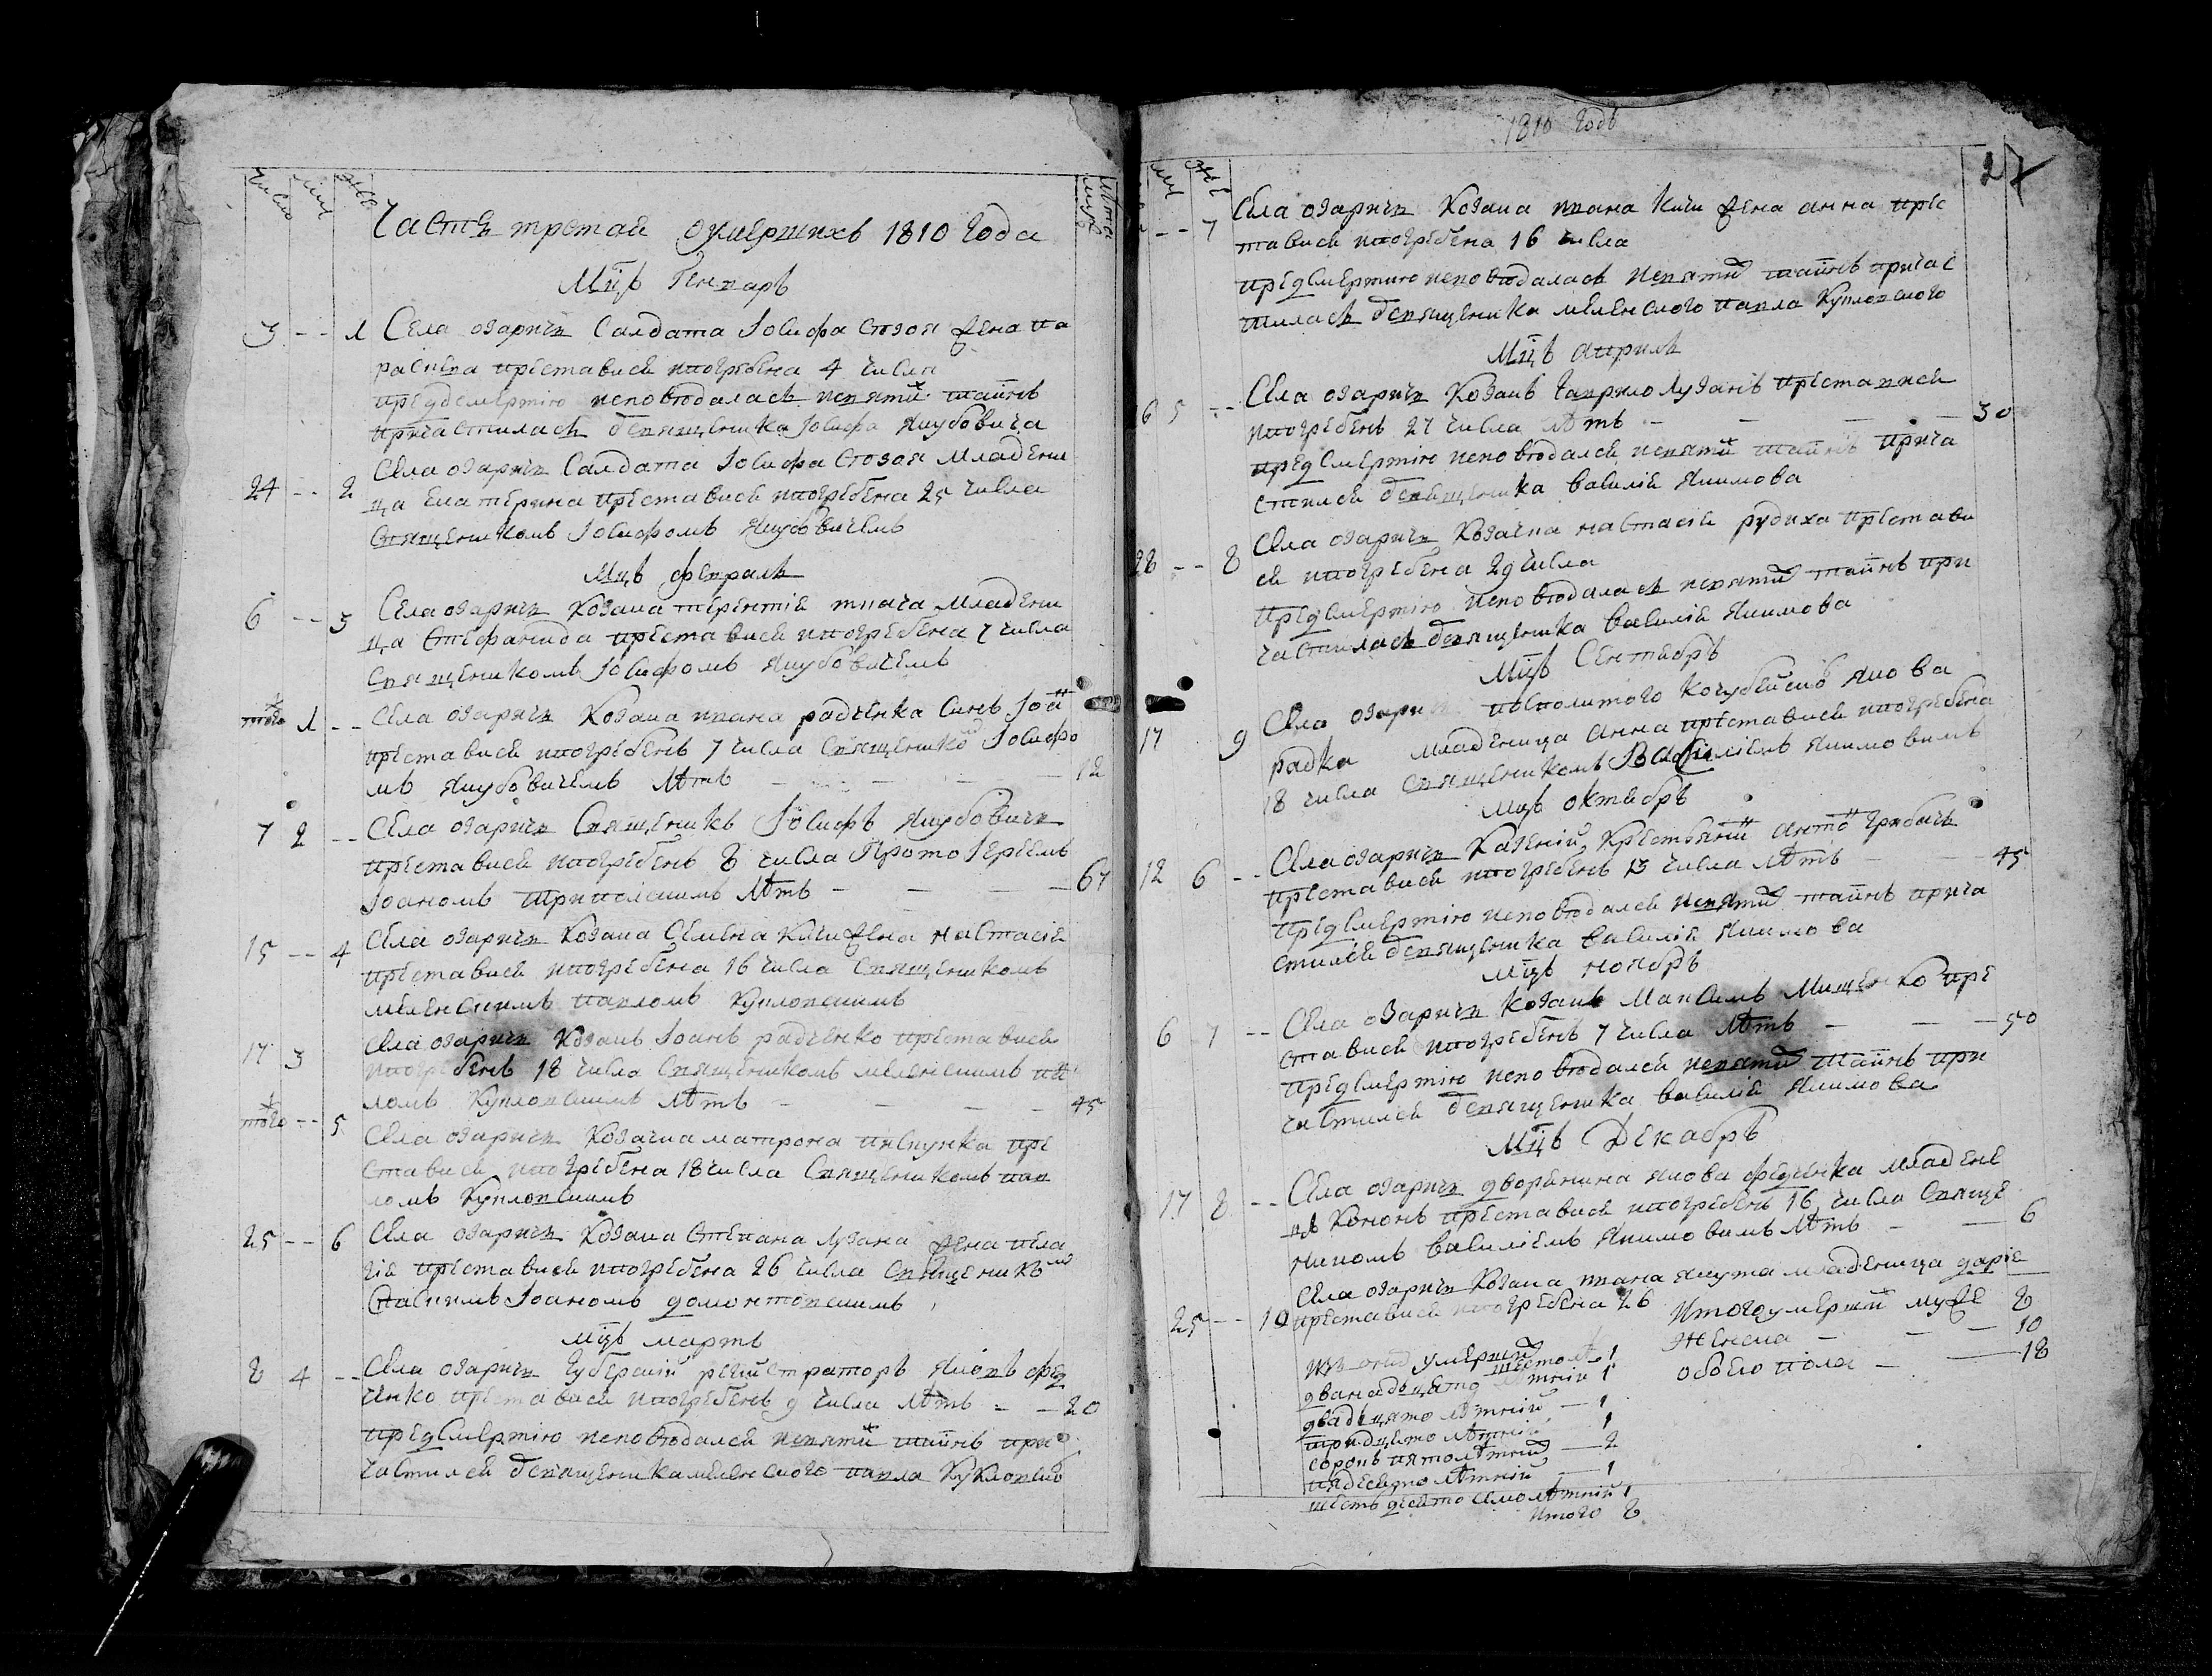 число муж жен
лѣта мужей
Часть третая о умершихъ 1810 года
Мцъ Генваръ
3 -- 1 Села озаричъ Салдата Iосифа Стозоя жена Па
раскева преставися и погребена 4 числа
предъ смертию исповѣдалась и святыхъ таинъ
причастилась ѿ священика Iосифа Якубовича
24 -- 2 Села озаричъ Салдата Iосифа Стозоя младени
ца Екатерина преставися и погребена 25 числа
священикомъ Iосифомъ Якубовичемъ
Мцъ февраль
6 -- 3 Села озаричъ козака терентия ткача младени
ца Стефанида преставися и погребена 7 числа
священикомъ Iосифомъ Якубовичемъ
тогож 1 -- Села озаричъ козака ивана радченка синъ Iоанъ
преставися и погребенъ 7 числа священикомъ Iосифо
мъ Якубовичемъ лѣтъ - - - - 12
7 2 -- Села озаричъ священикъ Iосифъ Якубовичъ
преставися и погребенъ 8 числа Протоiереемъ
Iоаномъ Трипольскимъ лѣтъ - - - - 67
15 -- 4 Села озаричъ козака Семена кичи жена настасия
преставися и погребена 16 числа священикомъ
меленскимъ павломъ Кукловскимъ
17 3 Села озаричъ козакъ Iоанъ радченко преставися
и погребенъ 18 числа священикомъ меленскимъ па
ломъ Кукловскимъ лѣтъ - - - - 45
тогож -- 5 Села озаричъ козачка матрона пискунка пре
ставися и погребена 18 числа священикомъ пав
ломъ Кукловскимъ
25 -- 6 Села озаричъ козака Степана лузана жена пела
гия преставися и погребена 26 числа священикомъ
спаскимъ Iоаномъ домонтовскимъ
Мцъ мартъ
8 4 -- Села озаричъ губерский регистраторъ Яковъ фед
ченко преставися и погребенъ 9 числа лѣтъ - - 20
предсмертию исповѣдался и святыхъ таинъ при
частился ѿ священика меленского павла Кукловско
1810 годъ
27
муж жен
-- 7 Села озаричъ козака ивана кичи жена анна прес
тавися и погребена 16 числа
предсмертию исповѣдалась и святыхъ таинъ причас
тилась ѿ священика меленского павла Кукловского
Мцъ априль
6 5 -- Села озаричъ козакъ гаврило лузанъ преставися
и погребенъ 27 числа лѣтъ - - - - 30
предсмертию исповѣдался и святыхъ таинъ прича
стился ѿ священика василия Якимова
28 -- 8 Села озаричъ козачка настасия рудиха престави
ся и погребена 29 числа
предсмертию исповѣдалась и святыхъ таинъ при
частилась ѿ священика василия Якимова
Мцъ Сентябръ
17 9 Села озаричъ посполитого кочубейского якова
радка младеница анна преставися и погребена
18 числа священикомъ Василиемъ Якимовимъ
Мцъ октябръ
12 6 -- Села озаричъ казений крестьянинъ антонъ грибачъ
преставися и погребенъ 13 числа лѣтъ - - 45
предсмертию исповѣдался и святыхъ таинъ прича
стился ѿ священика василия Якимова
Мцъ ноябръ
6 7 -- Села озаричъ козакъ Максимъ Мищенко пре
ставися и погребенъ 7 числа лѣтъ - - - 50
предсмертию исповѣдался и святыхъ таинъ при
частился ѿ священика василия Якимова
Мцъ Декабръ
17 8 -- Села озаричъ дворянина якова федченка младене
цъ Кононъ преставися и погребенъ 16 числа свяще
никомъ василиемъ Якимовимъ лѣтъ - - 6
Села озаричъ козака ивана якута младеница дария
25 -- 10 преставися и погребена 26
Итого умерший муже 8
Женска - - - 10
обоего пола - - 18
Изъ онихъ умерших
шестолѣ 1
дванадьцято лѣтний 1
двадцято лѣтний - 1
тридцято лѣтний 1
сорокъ пятолѣтний - 2
пядесято лѣтний - 1
шестьдесято семолѣтний 1
Итого 8